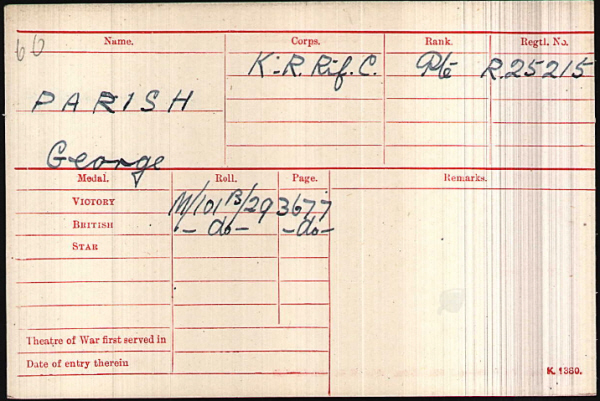 60
Name. Corps. Rank. Regtl. No.
K.R.Rif.C. Pte R.25215
PARISH
George
Medal. Roll. Page. Remarks.
VICTORY M/101B/29 3677
BRITISH -do- -do-
STAR
Theatre of War first served in
Date of entry therein
K. 1380.